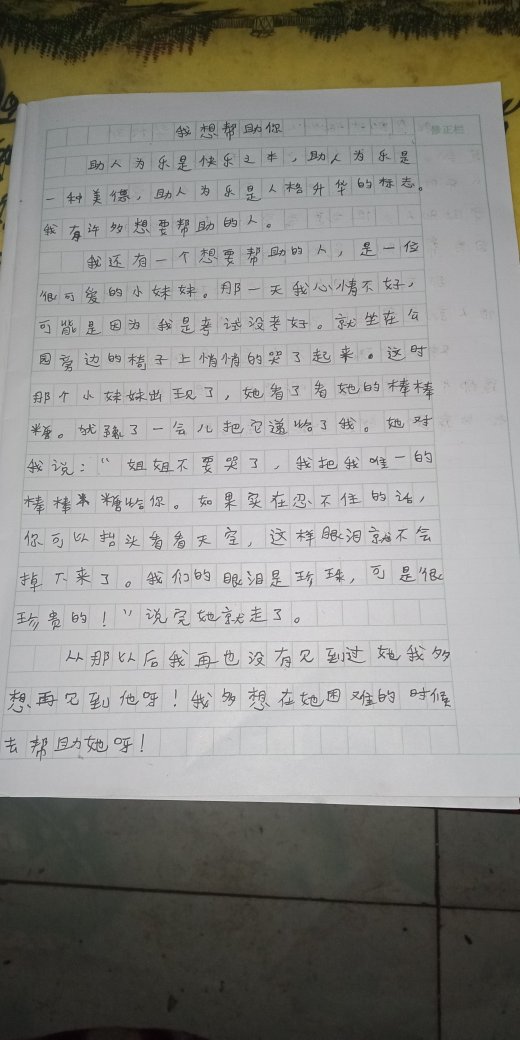 我想帮助你
助人为乐是快乐之本，助人为乐是
一种美德，助人为乐是人格升华的标志。
我有许多想要帮助的人。
我还有一个想要帮助的人，是一位
很可爱的小妹妹。那一天我心情不好，
可能是因为我是考试没考好。就坐在公
园旁边的椅子上悄悄的哭了起来。这时
那个小妹妹出现了，她看了看她的棒棒
糖。犹豫了一会儿把它递给了我。她对
我说：“姐姐不要哭了，我把我唯一的
棒棒糖给你。如果实在忍不住的话，
你可以抬头看看天空，这样眼泪就不会
掉下来了。我们的眼泪是珍珠，可是很
珍贵的！”说完她就走了。
从那以后我再也没有见到过她我多
想再见到他呀！我多想在她困难的时候
去帮助她呀！